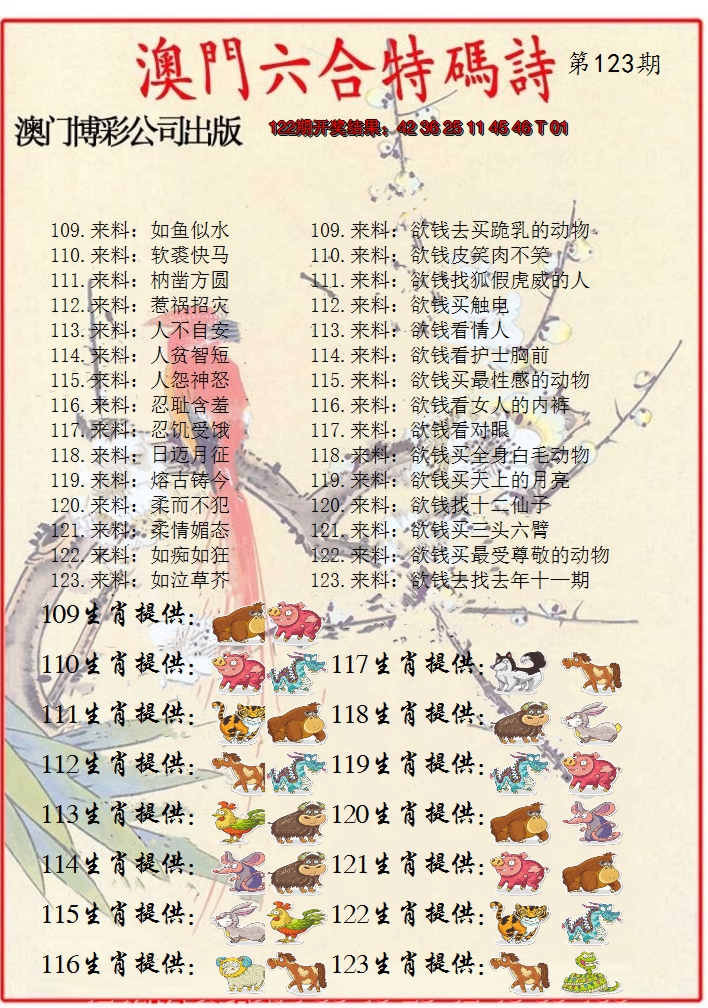 澳門六合特碼詩 第123期
澳门博彩公司出版 122期开奖结果：42 36 25 11 45 46 T 01
109.来料：如鱼似水 109.来料：欲钱去买跪乳的动物
110.来料：软裘快马 110.来料：欲钱皮笑肉不笑
111.来料：枘凿方圆 111.来料：欲钱找狐假虎威的人
112.来料：惹祸招灾 112.来料：欲钱买触电
113.来料：人不自安 113.来料：欲钱看情人
114.来料：人贫智短 114.来料：欲钱看护士胸前
115.来料：人怨神怒 115.来料：欲钱买最性感的动物
116.来料：忍耻含羞 116.来料：欲钱看女人的内裤
117.来料：忍饥受饿 117.来料：欲钱看对眼
118.来料：日迈月征 118.来料：欲钱买全身白毛动物
119.来料：熔古铸今 119.来料：欲钱买天上的月亮
120.来料：柔而不犯 120.来料：欲钱找十二仙子
121.来料：柔情媚态 121.来料：欲钱买三头六臂
122.来料：如痴如狂 122.来料：欲钱买最受尊敬的动物
123.来料：如泣草芥 123.来料：欲钱去找去年十一期
109生肖提供：
110生肖提供： 117生肖提供：
111生肖提供： 118生肖提供：
112生肖提供： 119生肖提供：
113生肖提供： 120生肖提供：
114生肖提供： 121生肖提供：
115生肖提供： 122生肖提供：
116生肖提供： 123生肖提供：